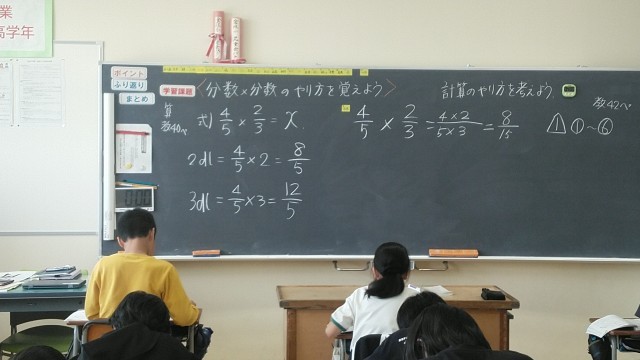 業
高学年
ポイント
ふり返り
まとめ
学習課題
〈分数×分数のやり方を覚えよう〉
算
教40ページ
式) 4/5 × 2/3 = x.
2dl = 4/5 × 2 = 8/5
3dl = 4/5 × 3 = 12/5
計算のやり方を考えよう
4/5 × 2/3 = 4×2/5×3 = 8/15
教42ページ
△1 ①〜⑥